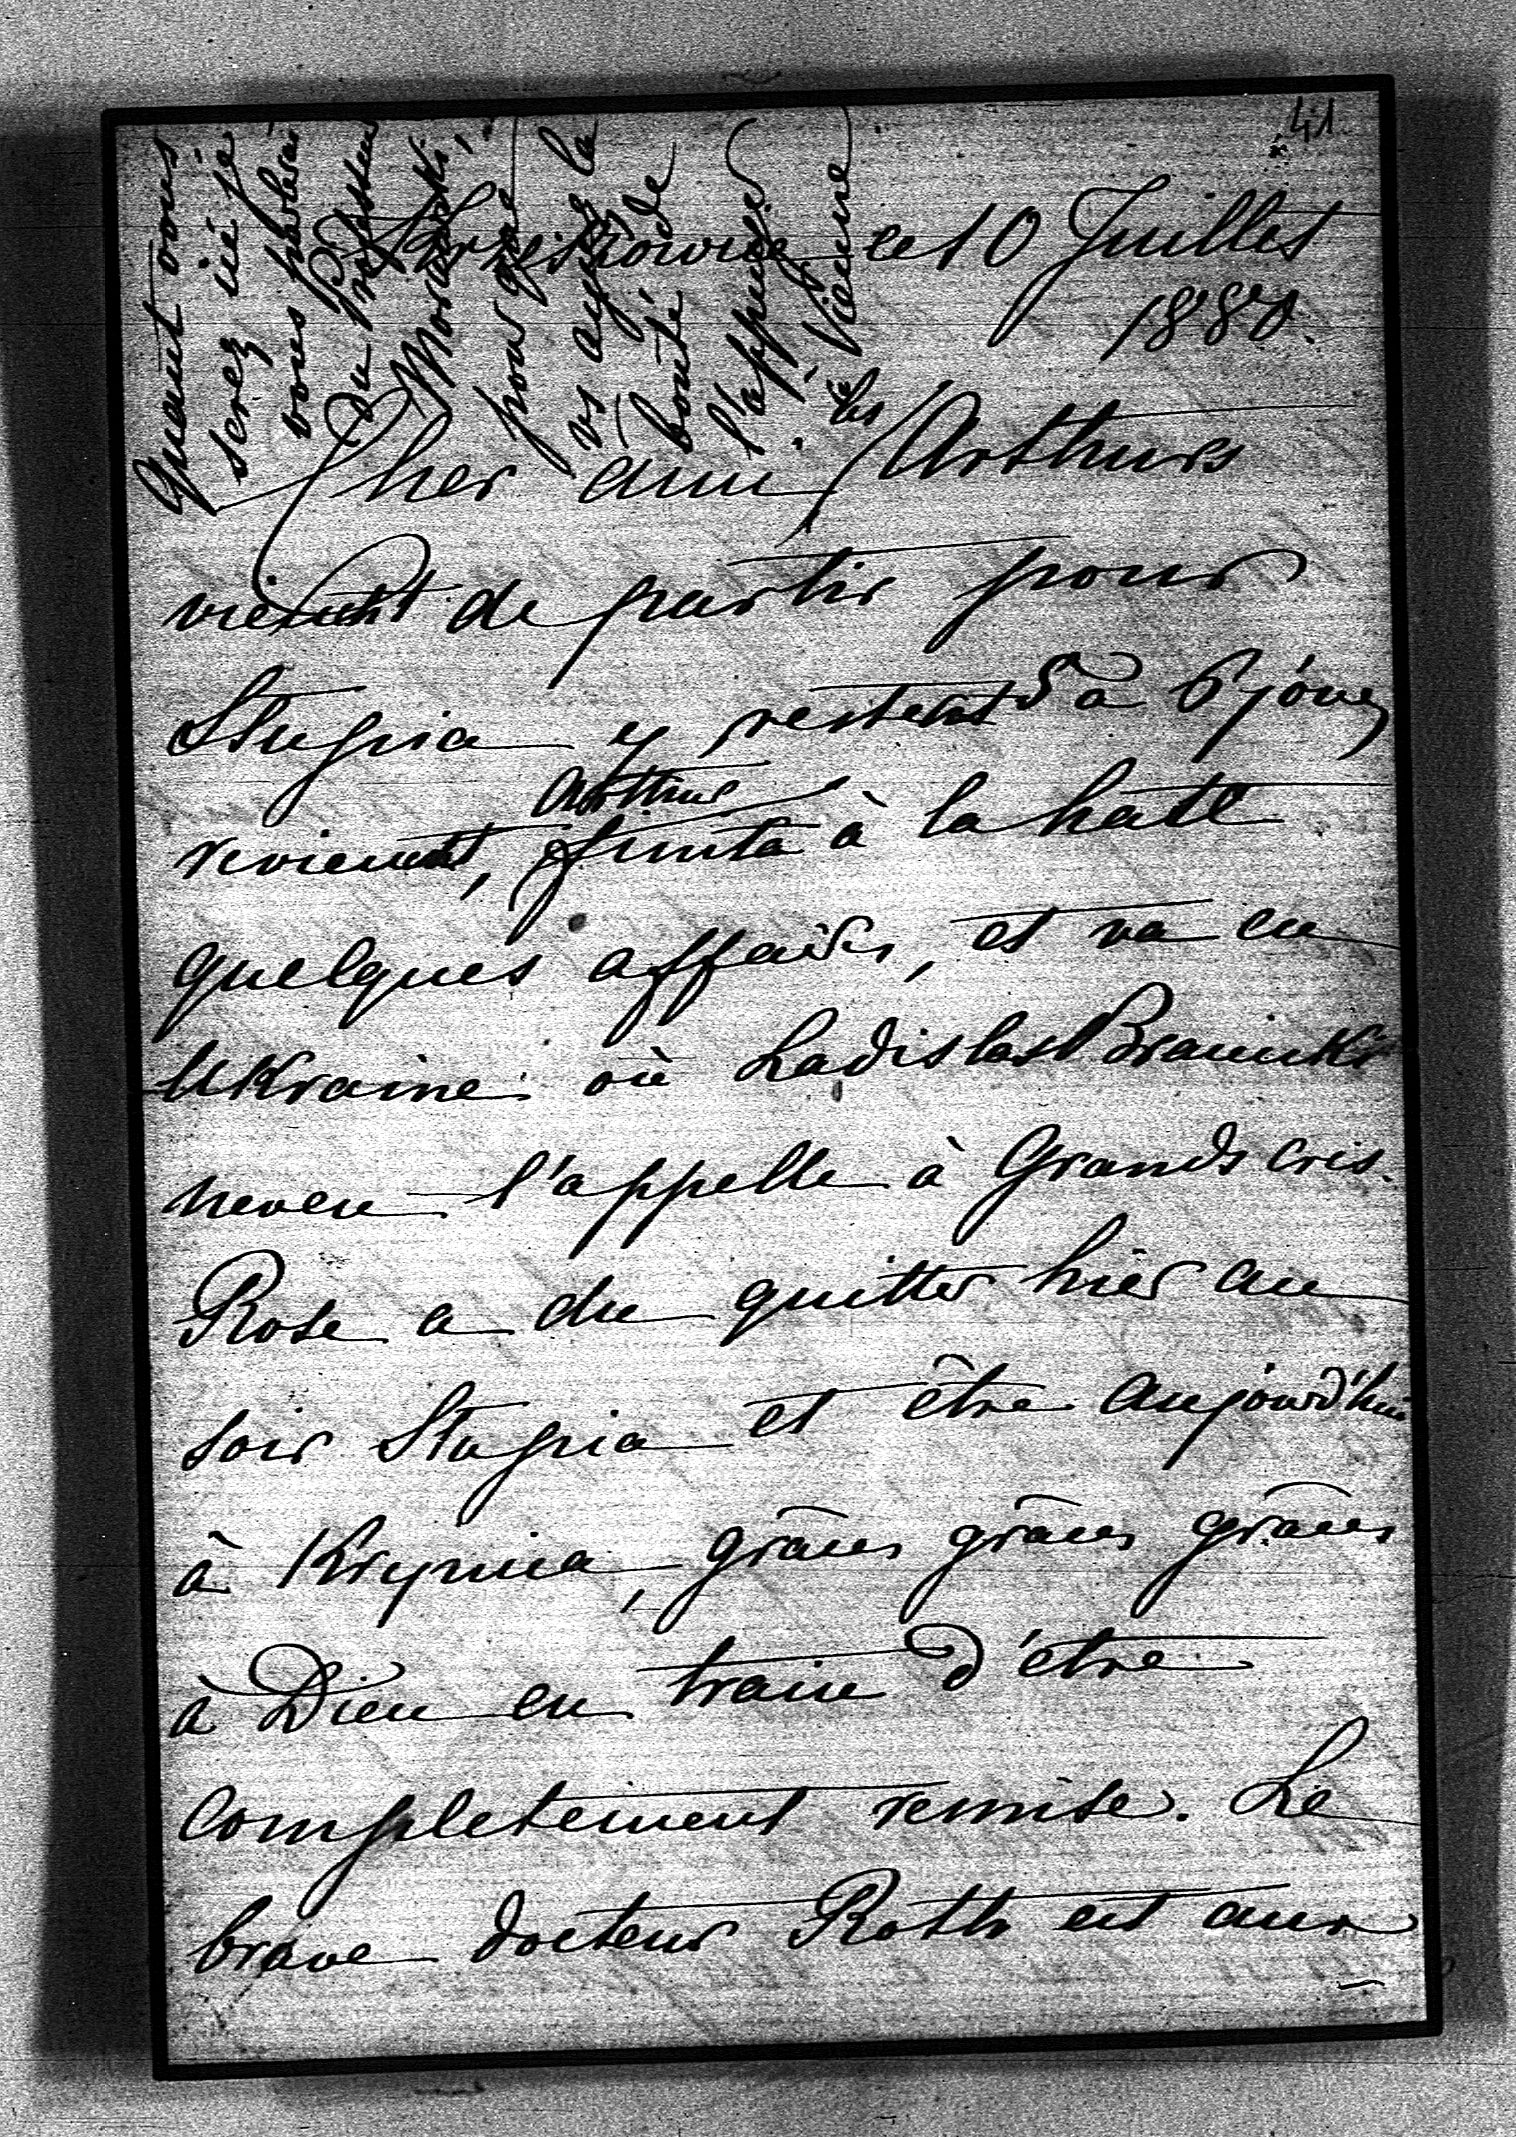 41
Krzeszowice ce 10 Juillet
1880.
Cher ami. les Arthurs
viennent de partir pour
Stupia y restent 5 à 6 jours
reviennent, Arthur finit à la hate
quelques affaires, et va en
Ukraine où Ladislas Branicki
neveu l'appelle à Grands cris.
Rose a du quitter hier au
soir Stupia et être aujourd'hui
à Krynica, grâces grâces grâces
à Dieu en train d'être
completement remise. Le
brave docteur Roth est aux
Quant vous
serez ici je
vous parlerai
du Professeur
Morawski,
pour que
vs ayez la
bonté de
l'appuyer
à Vienne